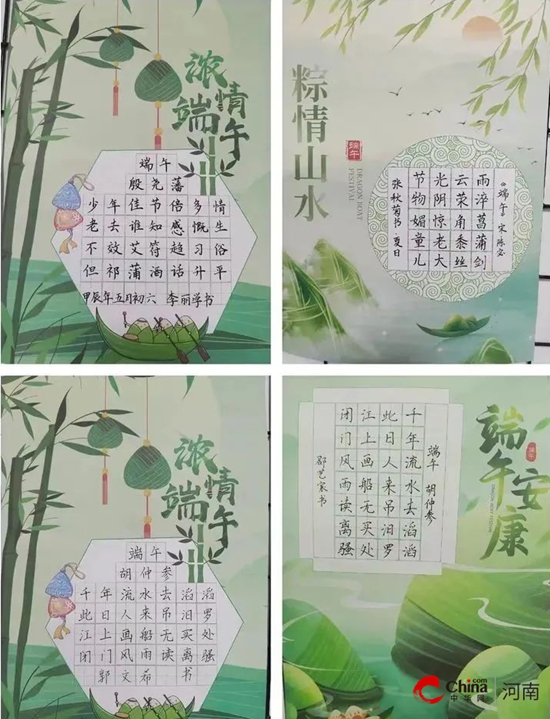 浓情端午
端午
殷尧藩
少年佳节倍多情
老去谁知感慨生
不效艾符趋习俗
但祈蒲酒话升平
甲辰年五月初六 李丽学书
粽情山水
端午
DRAGON BOAT FESTIVAL
《端午》宋 陈宓
雨淬菖蒲剑
云荣角黍丝
光阴惊老大
节物媚童儿
张秋菊书·夏日
浓情端午
端午
胡仲参
千年流水去滔滔
此日人来吊汨罗
江上画船无买处
闭门风雨读离骚
郭文书
端午安康
端午 胡仲参
千年流水去滔滔
此日人来吊汨罗
江上画船无买处
闭门风雨读离骚
艺家书
China.com
中华网
河南